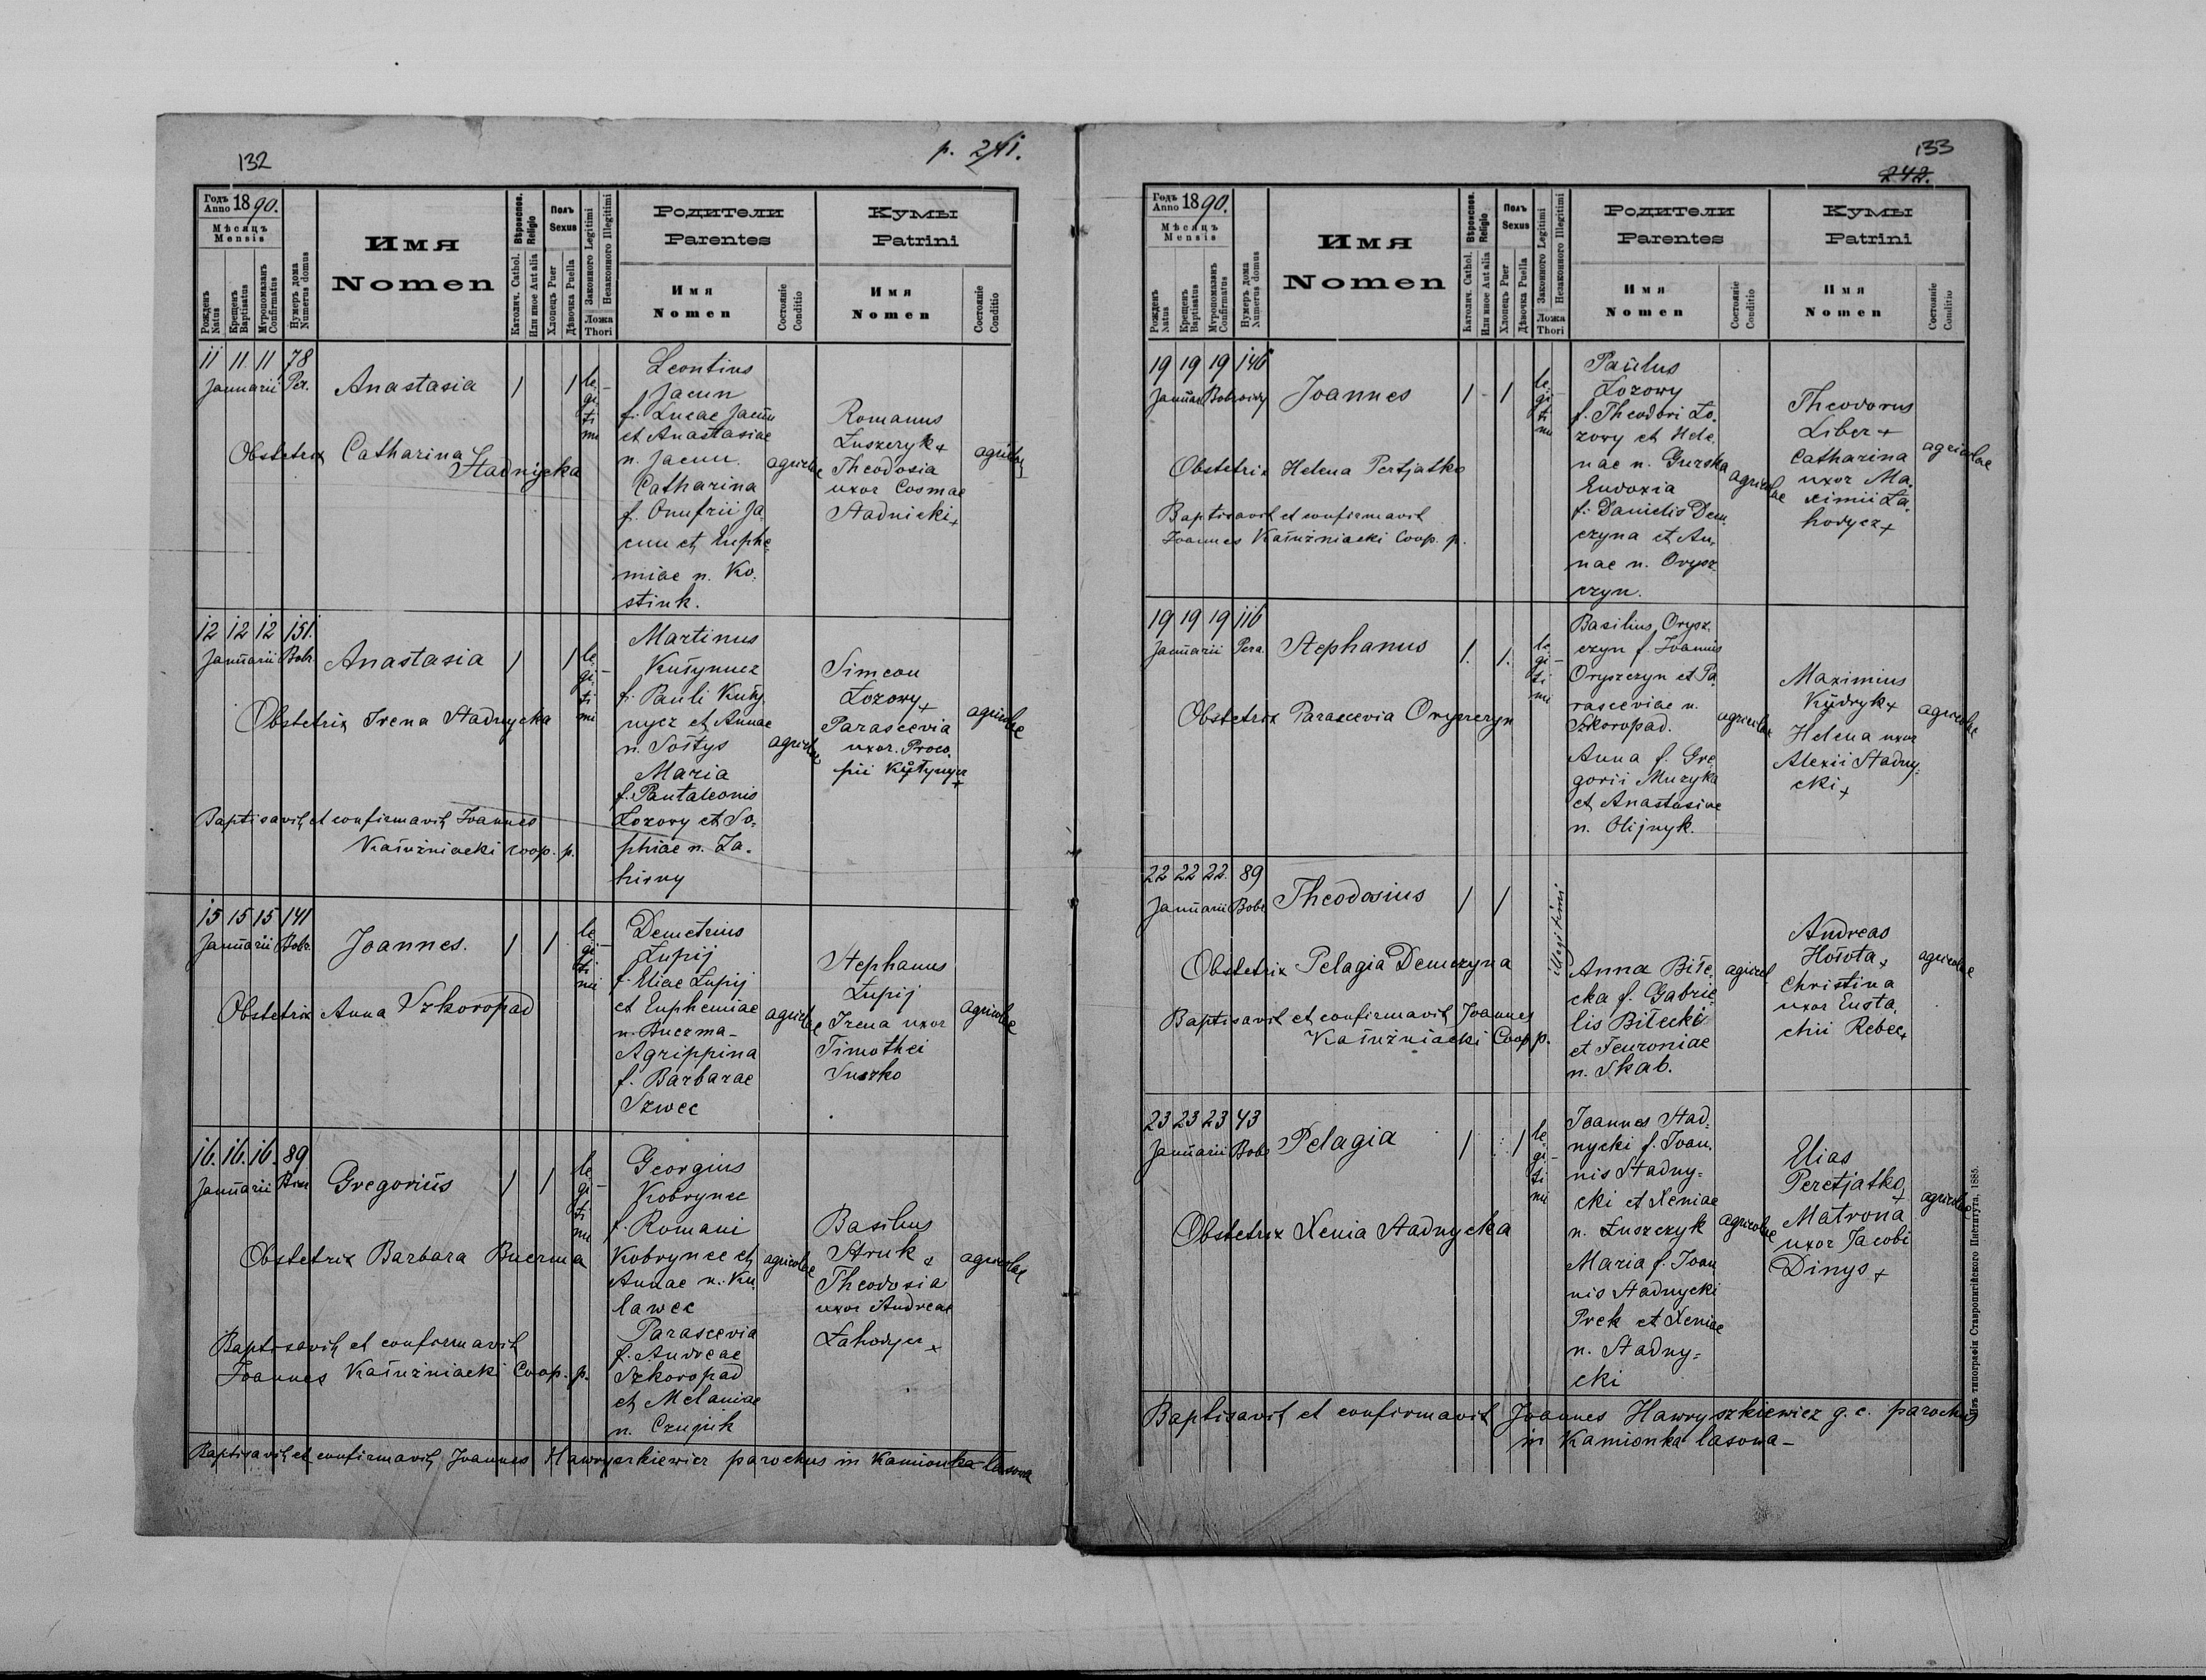 132
p. 241.
Годъ
Anno 1890.
Мѣсяцъ
Mensis
Рожденъ
Natus
Крещенъ
Baptisatus
Муропомазанъ
Confirmatus
Нумеръ дома
Numerus domus
Имя
Nomen
Вѣроиспов.
Religio
Католич. Cathol.
Или иное Aut alia
Полъ
Sexus
Хлопецъ Puer
Дѣвочка Puella
Законного Legitimi
Незаконного Illegitimi
Ложа
Thori
Родители
Parentes
Имя
Nomen
Состоянiе
Conditio
Кумы
Patrini
Имя
Nomen
Состоянiе
Conditio
11 11 11 78
Januarii Per.
Anastasia
1 1
le-
gi-
ti
mi
Obstetrix Catharina
Stadnycka
Leontius
Jacun
f. Lucae Jacun
et Anastasiae
n. Jacun.
Catharina
f. Onufrii Ja-
cun et Euphe-
miae n. Ko-
stiuk.
agricolae
Romanus
Łuszczyk +
Theodosia
uxor Cosmae
Stadnicki +
agricolae
12 12 12 151.
Januarii Bobr.
Anastasia
1 1
le-
gi-
ti
mi
Obstetrix Irena Stadnycka
Baptisavit et confirmavit Joannes
Kałużniacki coop. p.
Martinus
Kułynycz
f. Pauli Kuły-
nycz et Annae
n. Sołtys
Maria
f. Pantaleonis
Łozowy et So-
phiae n. Za-
hirny
agricolae
Simeon
Łozowy +
Parascevia
uxor Proco-
pii Kułynycz
+
agricolae
15 15 15 141
Januarii Bobr.
Joannes.
1 1
le-
gi-
ti
mi
Obstetrix Anna Szkoropad
Demetrius
Łupij
f. Eliae Łupij
et Euphemiae
n. Buczma-
Agrippina
f. Barbarae
Szwec
agricolae
Stephanus
Łupij
Irena uxor
Timothei
Suszko
agricolae
16. 16. 16. 89
Januarii
Gregorius
1 1
le-
gi-
ti
mi
Obstetrix Barbara Buczma
Baptisavit et confirmavit
Joannes Kałużniacki Coop. p.
Georgius
Kobrynec
f. Romani
Kobrynec et
Annae n. Ku-
lawec
Parascevia
f. Andreae
Szkoropad
et Melaniae
n. Czujuk
agricolae
Basilius
Struk +
Theodosia
uxor Andreae
Łahodycz +
agricolae
Baptisavit et confirmavit Joannes Hawryszkiewicz parochus in Kamionka lasowa
133
242.
Годъ
Anno 1890.
Мѣсяцъ
Mensis
Рожденъ
Natus
Крещенъ
Baptisatus
Муропомазанъ
Confirmatus
Нумеръ дома
Numerus domus
Имя
Nomen
Вѣроиспов.
Religio
Католич. Cathol.
Или иное Aut alia
Полъ
Sexus
Хлопецъ Puer
Дѣвочка Puella
Законного Legitimi
Незаконного Illegitimi
Ложа
Thori
Родители
Parentes
Имя
Nomen
Состоянiе
Conditio
Кумы
Patrini
Имя
Nomen
Состоянiе
Conditio
19 19 19 146
Januar Bobroidy
Joannes
1 - 1
le-
gi-
ti
mi
Obstetrix Helena Pertjatko
Baptisavit et confirmavit
Joannes Kałużniacki Coop. p.
Paulus
Łozowy
f. Theodori Ło-
zowy et Hele-
nae n. Gurska
Eudoxia
f. Danielis Dem-
czyna et An-
nae n. Orysz-
czyn.
agricolae
Theodorus
Liber +
Catharina
uxor Ma-
ximii Ła-
hodycz +
agricolae
19 19 19 116
Januarii Pera.
Stephanus
1. 1.
le-
gi-
ti
mi
Obstetrix Parascevia Oryszczyn
Basilius Orysz-
czyn f. Joannis
Oryszczyn et Pa-
rasceviae n.
Szkoropad.
Anna f. Gre-
gorii Muzyka
et Anastasiae
n. Olijnyk.
agricolae
Maximius
Kudryk +
Helena uxor
Alexii Stadny-
cki +
agricolae
22 22 22. 89
Januarii Bobr
Theodosius
1 1
illegitimi
Obstetrix Pelagia Demczyna
Baptisavit et confirmavit Joannes
Kałużniacki Coop p.
Anna Biłe-
cka f. Gabrie-
lis Biłecki
et Feuroniae
n. Skab.
agricol
Andreas
Hołota +
Christina
uxor Eusta-
chii Rebec +
agricolae
23 23 23 43
Januarii Bobr
Pelagia
1 1
le-
gi-
ti
mi
Obstetrix Xenia Stadnycka
Joannes Stad-
nycki f. Joan-
nis Stadny-
cki et Xeniae
n. Łuszczyk
Maria f. Joan
nis Stadnycki
Prek et Xeniae
n. Stadny-
cki
agricolae
Elias
Peretjatko
+
Matrona
uxor Jacobi
Dinys +
agricolae
Baptisavit et confirmavit Joannes Hawryszkiewicz g. c. parochus
in Kamionka lasowa-
Изъ типографiи Ставропигiйского Института, 1885.